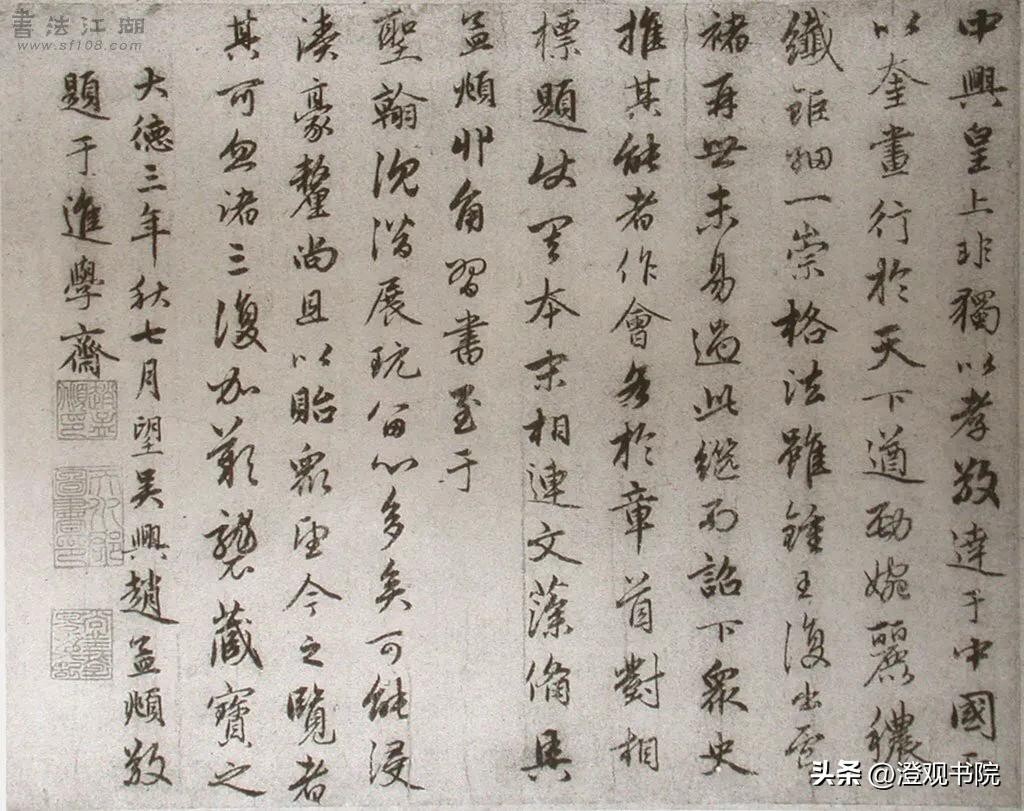 中興皇上非獨以孝敬達于中國
以奎畫行於天下遒勁婉麗穠
纖鉅細一崇格法雖鍾王復出虞
褚再世未易過此繼而詔下眾史
推其能者作會於章首對相
標題仗本末相連文藻備具
孟頫丱角習書至于
聖翰沈潛展玩留心多矣可能浸
漬豪釐尚且以貽眾今之覽者
其可忽諸三復加歎襲藏寶之
大德三年秋七月望吳興趙孟頫敬
題于進學齋
趙孟頫印
書法江湖
www.sf108.com
头条 @澄观书院